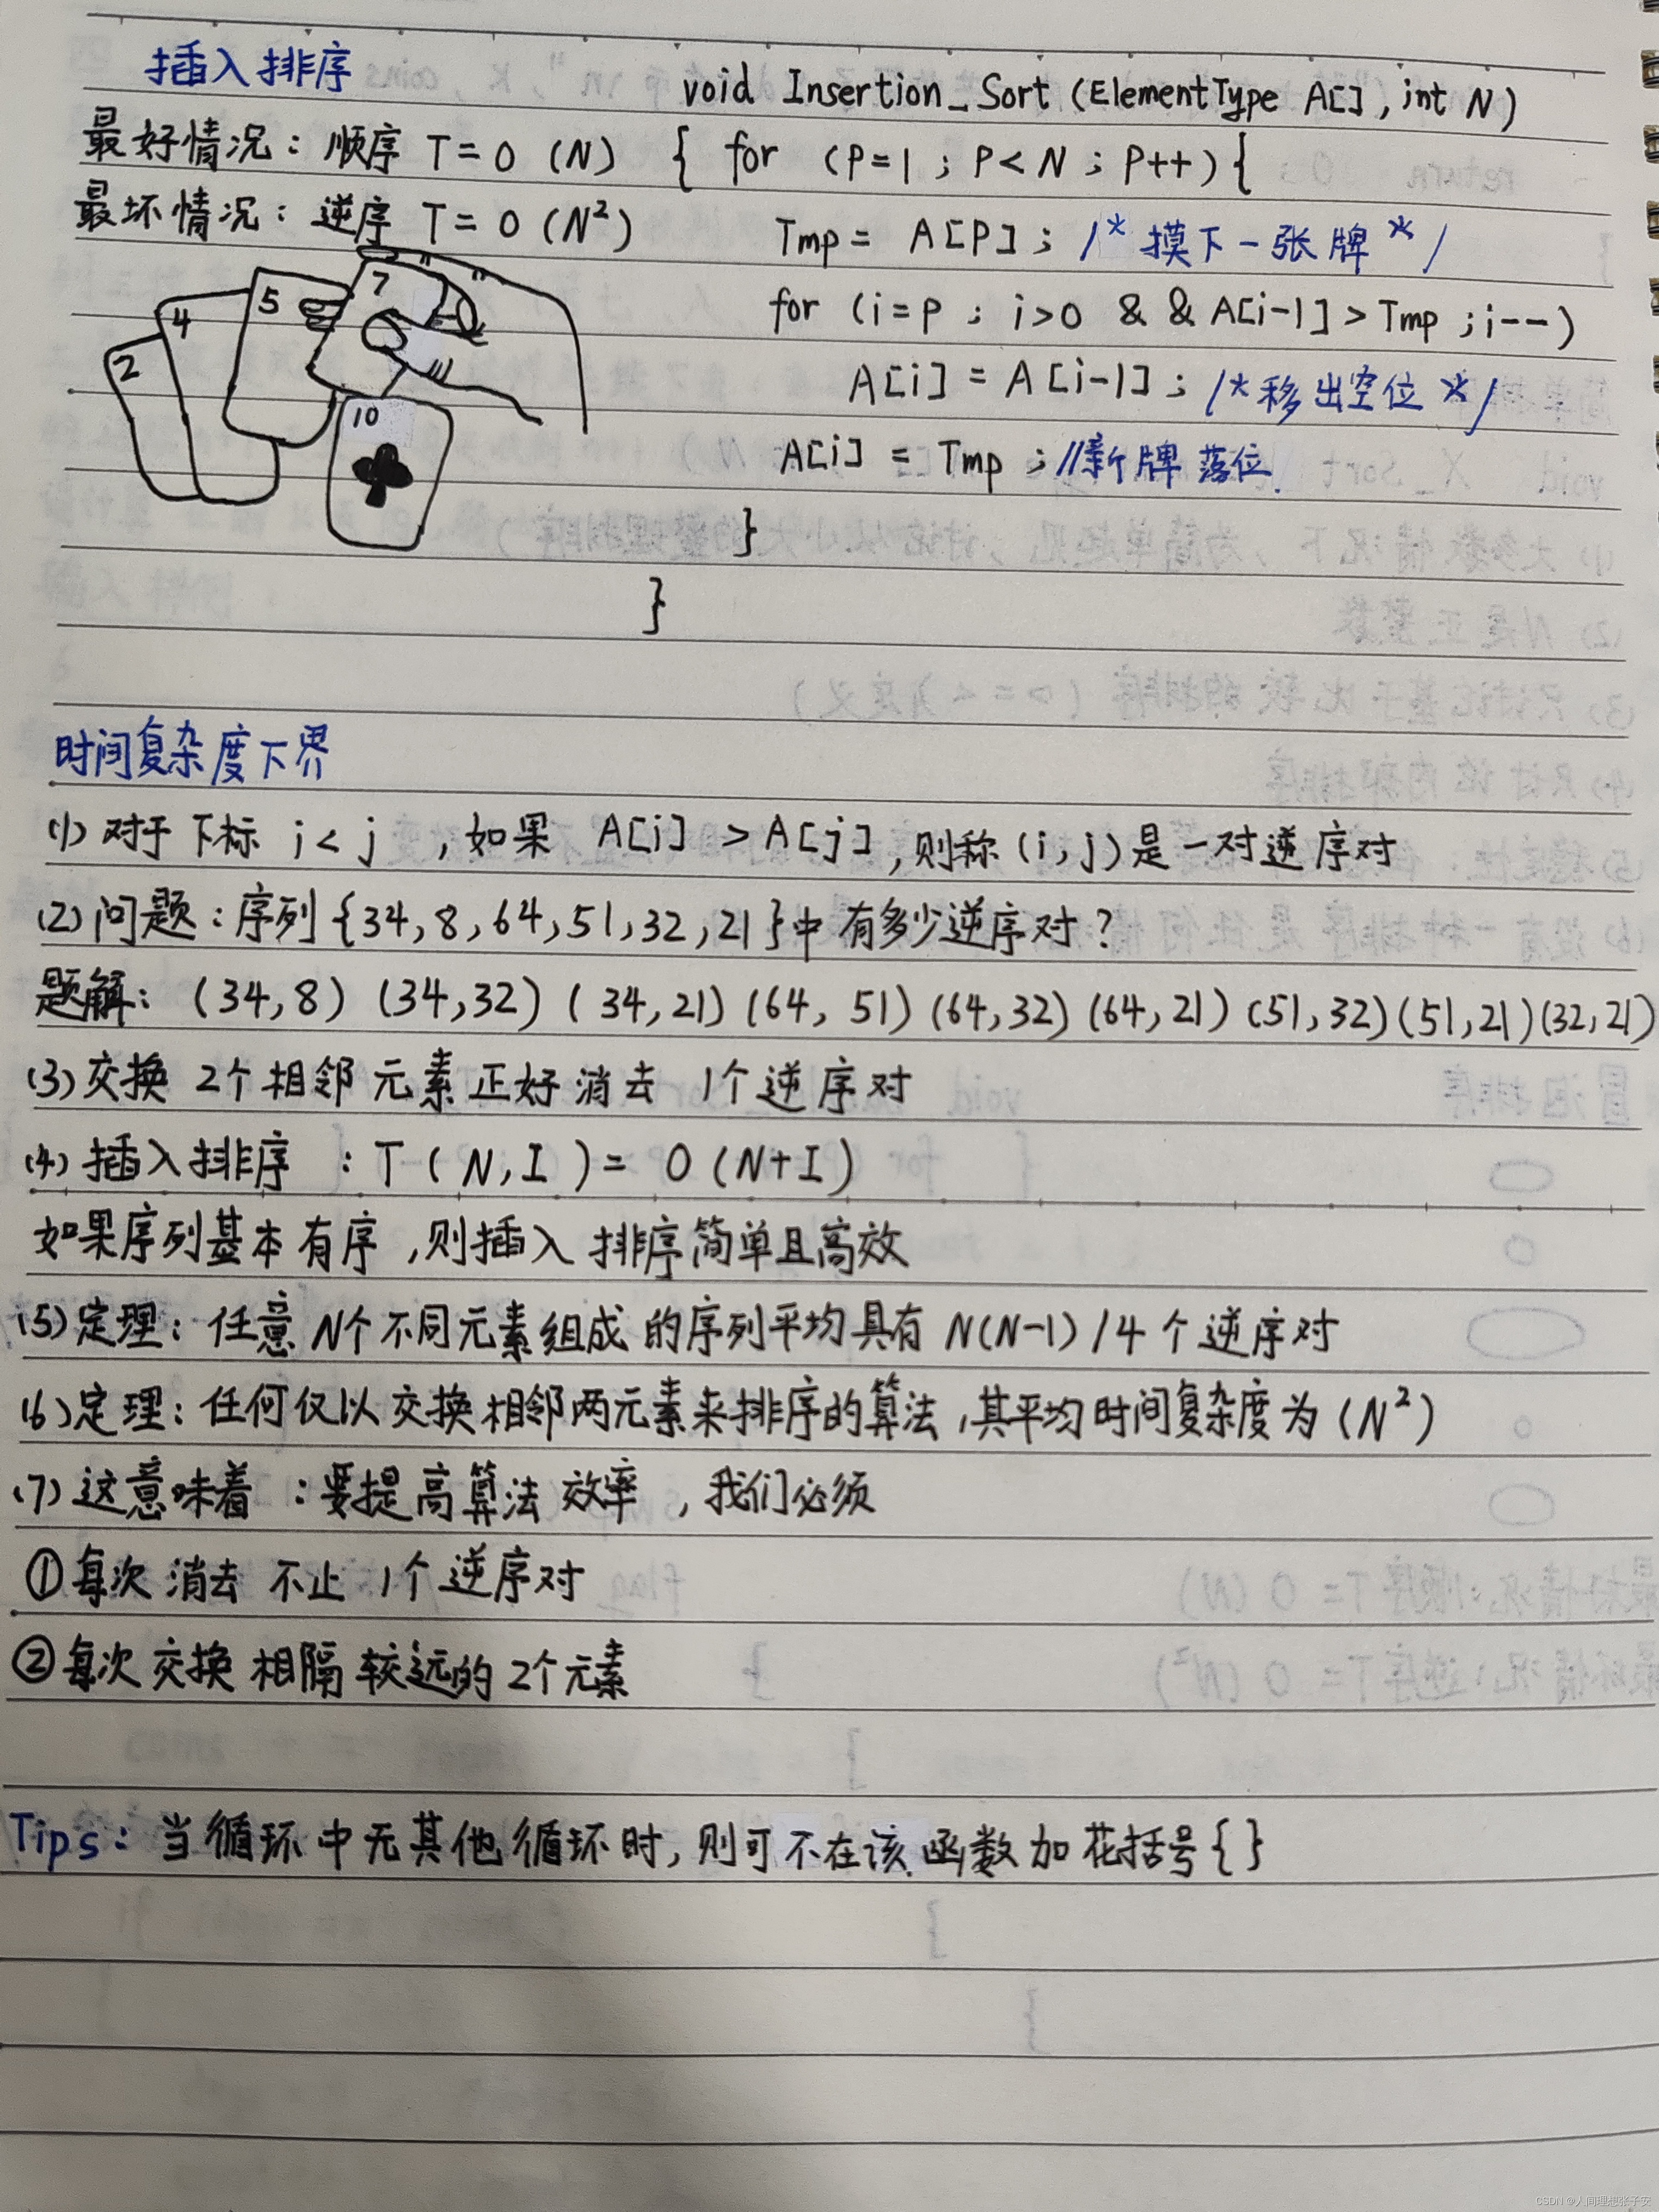 插入排序
void Insertion_Sort (ElementType A[], int N)
最好情况：顺序 T=O (N)
{ for (P=1 ; P<N ; P++){
最坏情况：逆序 T=O (N²)
Tmp = A[P] ; /* 摸下一张牌 */
for (i=P ; i>0 && A[i-1]>Tmp ; i--)
A[i] = A[i-1] ; /*移出空位 */
A[i] = Tmp ; //新牌落位
}
}
2
4
5
7
10
时间复杂度下界
(1) 对于下标 i<j ,如果 A[i] >A[j] ,则称(i,j)是一对逆序对
(2)问题：序列{34,8,64,51,32,21}中有多少逆序对?
题解：(34,8) (34,32) (34,21) (64,51) (64,32) (64,21) (51,32) (51,21) (32,21)
(3)交换 2个相邻元素正好消去 1个逆序对
(4)插入排序 : T (N,I) = O (N+I)
如果序列基本有序 ,则插入排序简单且高效
(5)定理：任意N个不同元素组成的序列平均具有 N(N-1)/4 个逆序对
(6)定理：任何仅以交换相邻两元素来排序的算法 ,其平均时间复杂度为(N²)
(7)这意味着 :要提高算法效率 ,我们必须
①每次消去不止 1个逆序对
②每次交换相隔较远的2个元素
Tips：当循环中无其他循环时,则可不在该函数加花括号{}
CSDN @人间理想张子安